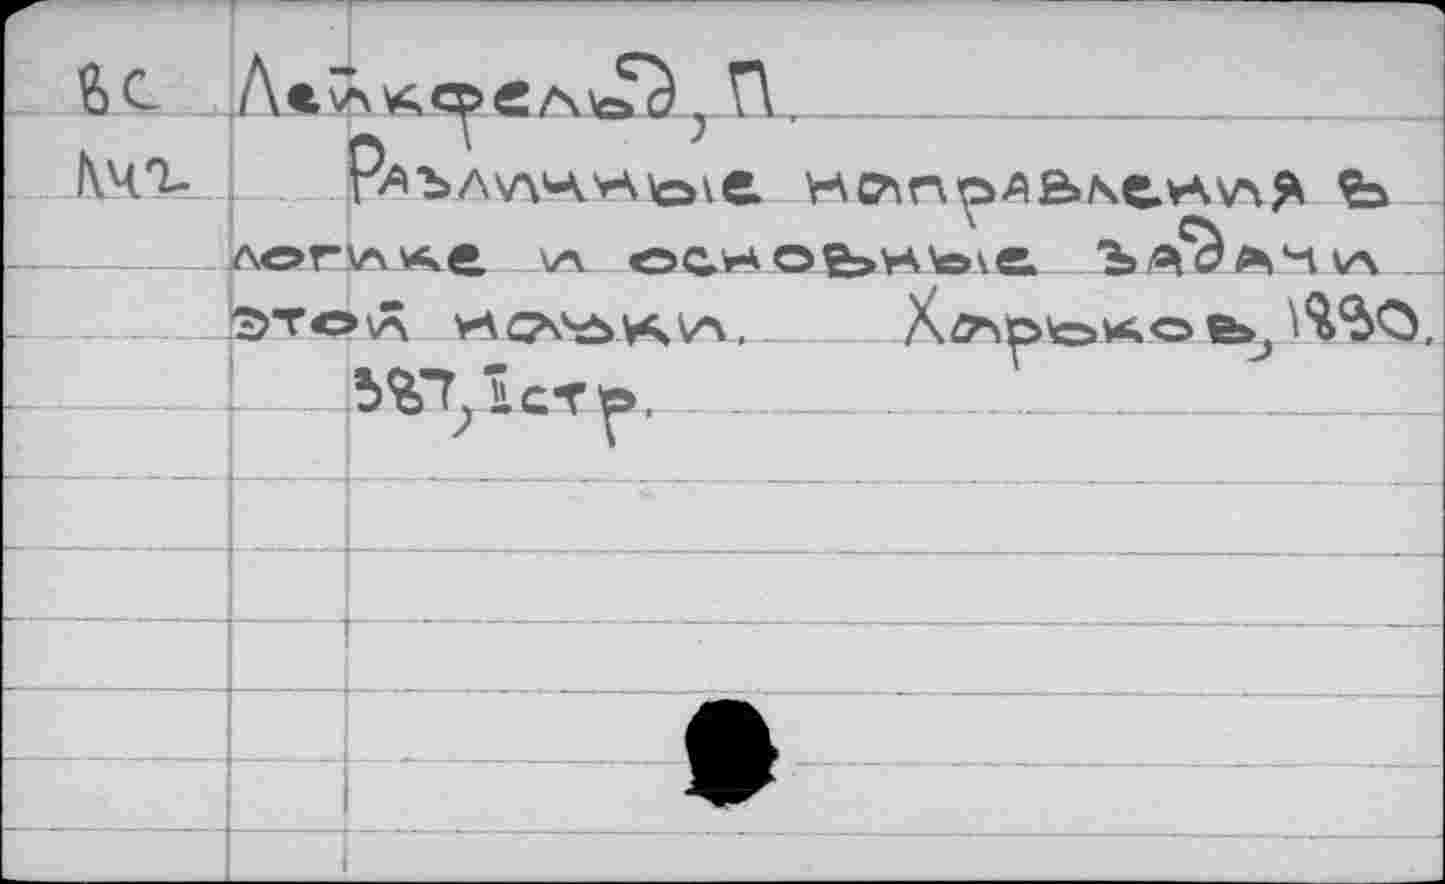 ВС Лейкфельд, П.
Л42 Различные направления в
логике и основные задачи
этой науки. Харьков, 1890.
387, II стр.